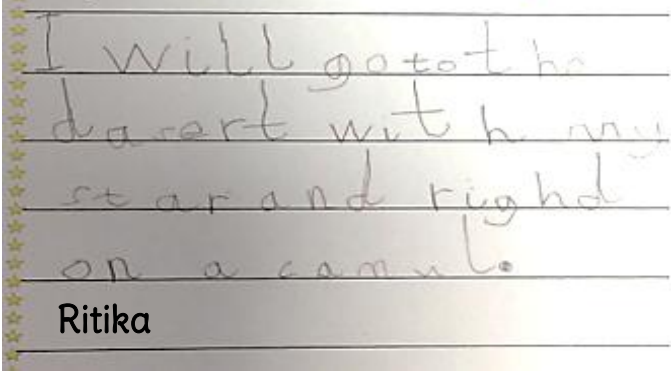 I will go to the
dasert with my
star and righd
on a camul.
Ritika